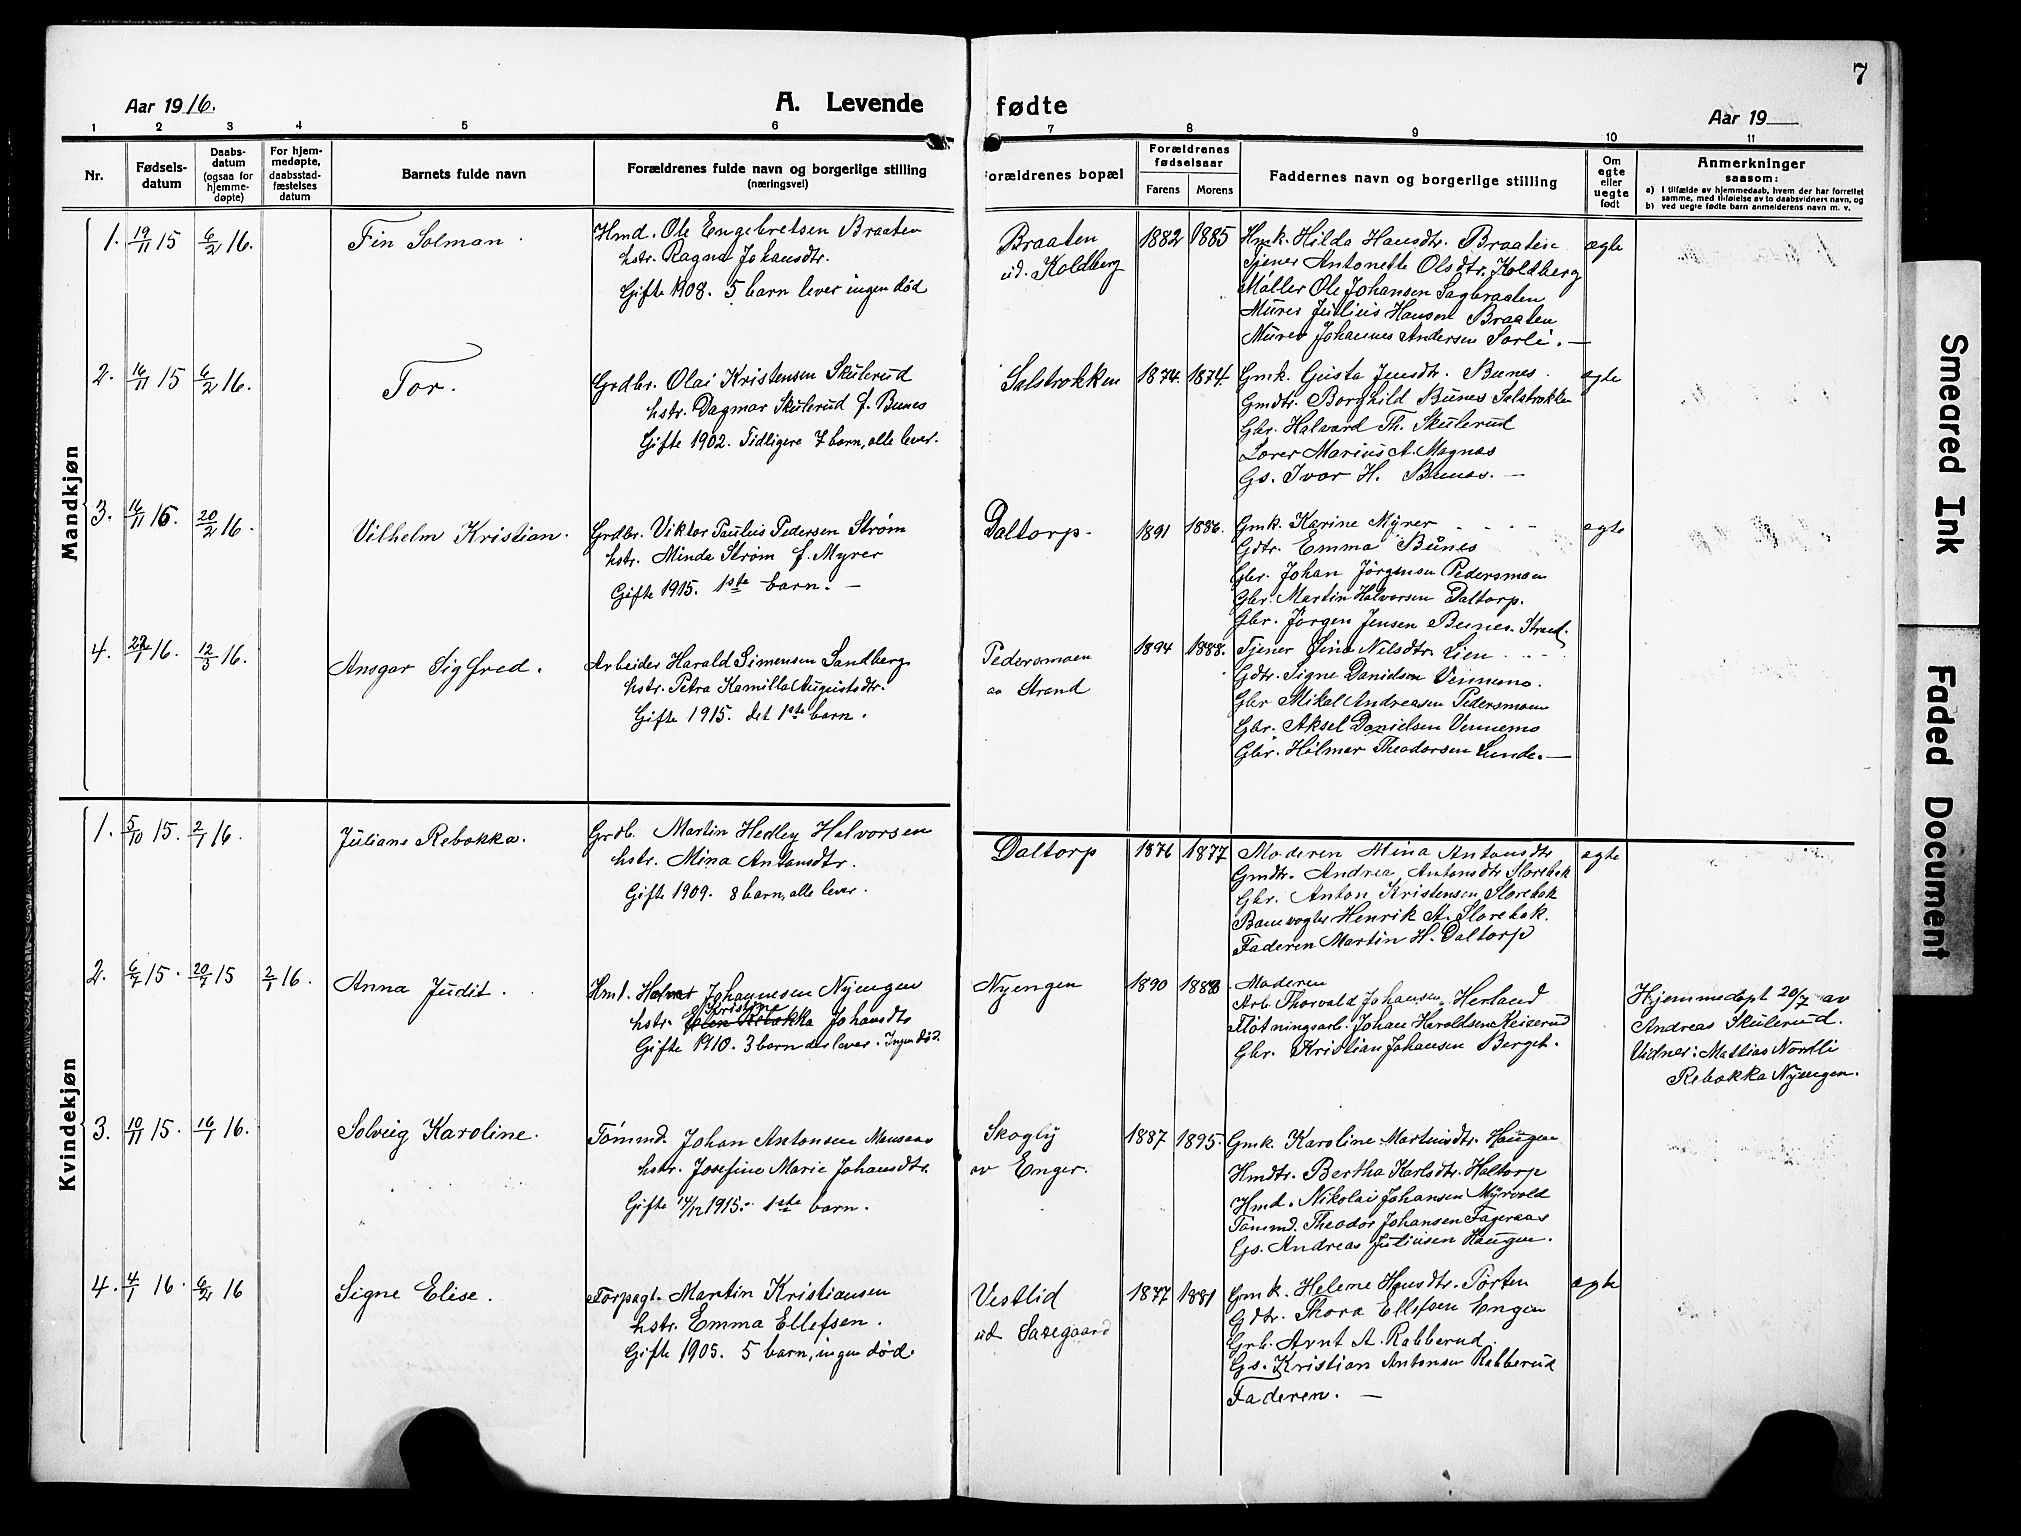 7
Aar 1916.
A. Levende
fødte
Aar 19
1 2 3 4 5 6 7 8 9 10 11
Nr.
Fødsels-
datum
Daabs-
datum
(ogsaa for
hjemme-
døpte)
For hjem-
medøpte,
daabsstad-
fæstelses
datum
Barnets fulde navn
Forældrenes fulde navn og borgerlige stilling
(næringsvei)
Forældrenes bopæl
Forældrenes
fødselsaar
Farens
Morens
Faddernes navn og borgerlige stilling
Om
egte
eller
uegte
født
Anmerkninger
saasom:
a) I tilfælde av hjemmedaab, hvem der har forrettet
samme, med tilføielse av to daabsvidners navn, og
b) ved uegte fødte barn anmelderens navn m. v.
Mandkjøn
1. 19/11 15 6/2 16.
Fin Solman.
Hmd. Ole Engebretsen Braaten
hstr. Ragna Johansdtr.
Gifte 1908. 5 barn lever ingen død
Braaten
ud. Koldberg
1882 1885
Hmk. Hilda Hansdtr. Braaten
Tjener Antonette Olsdtr. Koldberg
Møller Ole Johansen Sagbraaten
Murer Julius Hansen Braaten
Murer Johannes Andersen Sørli. —
ægte
2. 16/11 15 6/2 16.
Tor.
Grdbr. Olai Kristensen Skulerud
hstr. Dagmar Skulerud f. Bunes
Gifte 1902. Tidligere 7 barn, alle lever.
Solstrøkken
1874. 1874.
Gmk. Gusta Jensdtr. Bunes.
Gmdtr. Borghild Bunes Solstrøkken
Gbr. Halvard Th. Skulerud
Lærer Marius A. Magnæs
Gs. Ivar H. Bunes. —
ægte
3. 16/11 15. 20/2 16.
Vilhelm Kristian.
Grdbr. Viktor Paulius Pedersen Strøm
hstr. Minda Strøm f. Myrer
Gifte 1915. 1ste barn. —
Daltorp.
1891 1886.
Gmk. Karine Myrer
Gdtr. Emma Bunes
Gbr. Johan Jørgensen Pedersmoen
Gbr. Martin Halvorsen Daltorp.
Gbr. Jørgen Jensen Bunes. Strand.
ægte
4. 22/1 16. 12/3 16.
Ansgar Sigfred.
Arbeider Harald Simensen Sandberg
hstr. Petra Kamilla Augustsdtr.
Gifte 1915. det 1ste barn.
Pedersmoen
av Strand
1894 1888.
Tjener Sina Nilsdtr. Lien
Gdtr. Signe Danielsen Vennemo.
Gbr Mikal Andreasen Pedersmoen
Gbr. Aksel Danielsen Vennemo
Gbr. Hilmar Theodorsen Lunde. —
Kvindekjøn
1. 5/10 15. 2/1 16.
Juliane Rebekka.
Grdb. Martin Hedley Halvorsen
hstr. Mina Antonsdtr.
Gifte 1909. 8 barn, alle lever.
Daltorp
1876 1877
Moderen Mina Antonsdtr
Gmdtr. Andrea Antonsdtr Storebæk
Gbr. Anton Kristensen Storebæk
Banevogter Henrik A. Storebæk.
Faderen Martin H. Daltorp
ægte
2. 6/7 15. 20/7 15 2/1 16.
Anna Judit.
Hmd. Johannesen Nyengen
Kristine
hstr. Rebekka Johansdtr
Gifte 1910. 3 barn der lever. Ingen død.
Nyengen
1890 1888
Moderen
Arb. Thorvald Johansen Herland
Fløtningsarb. Johan Haroldsen Keiserud
Gbr. Kristian Johansen Berget.
Hjemmedøpt 20/7 av
Andreas Skulerud.
Vidner: Mattias Nordli
Rebekka Nyengen.
3. 10/11 15. 16/1 16.
Solveig Karoline.
Tømmd. Johan Antonsen Monsaas
hstr. Josefine Marie Johansdtr.
Gifte 14/12 1915. 1ste barn.
Skogly
av Enger.
1887 1895.
Gmk. Karoline Martinsdtr. Haugen
Hmdtr. Bertha Karlsdtr. Haltorp
Hmd. Nikolai Johansen Myrvold
Tømmd. Theodor Johansen Fageraas
Gs. Andreas Julinsen Haugen.
4. 4/1 16. 6/2 16
Signe Elise.
Forpagt. Martin Kristiansen
hstr. Emma Ellefsen.
Gifte 1905. 5 barn, ingen død.
Vestlid
ud Saxegaard
1877 1881
Gmk. Helene Hansdtr. Torten
Gdtr. Thora Ellefsen Engen
Grb. Arnt A. Rabberud.
Gs. Kristian Antonsen Rabberud
Faderen. —
ægte
Smeared Ink
Faded Document